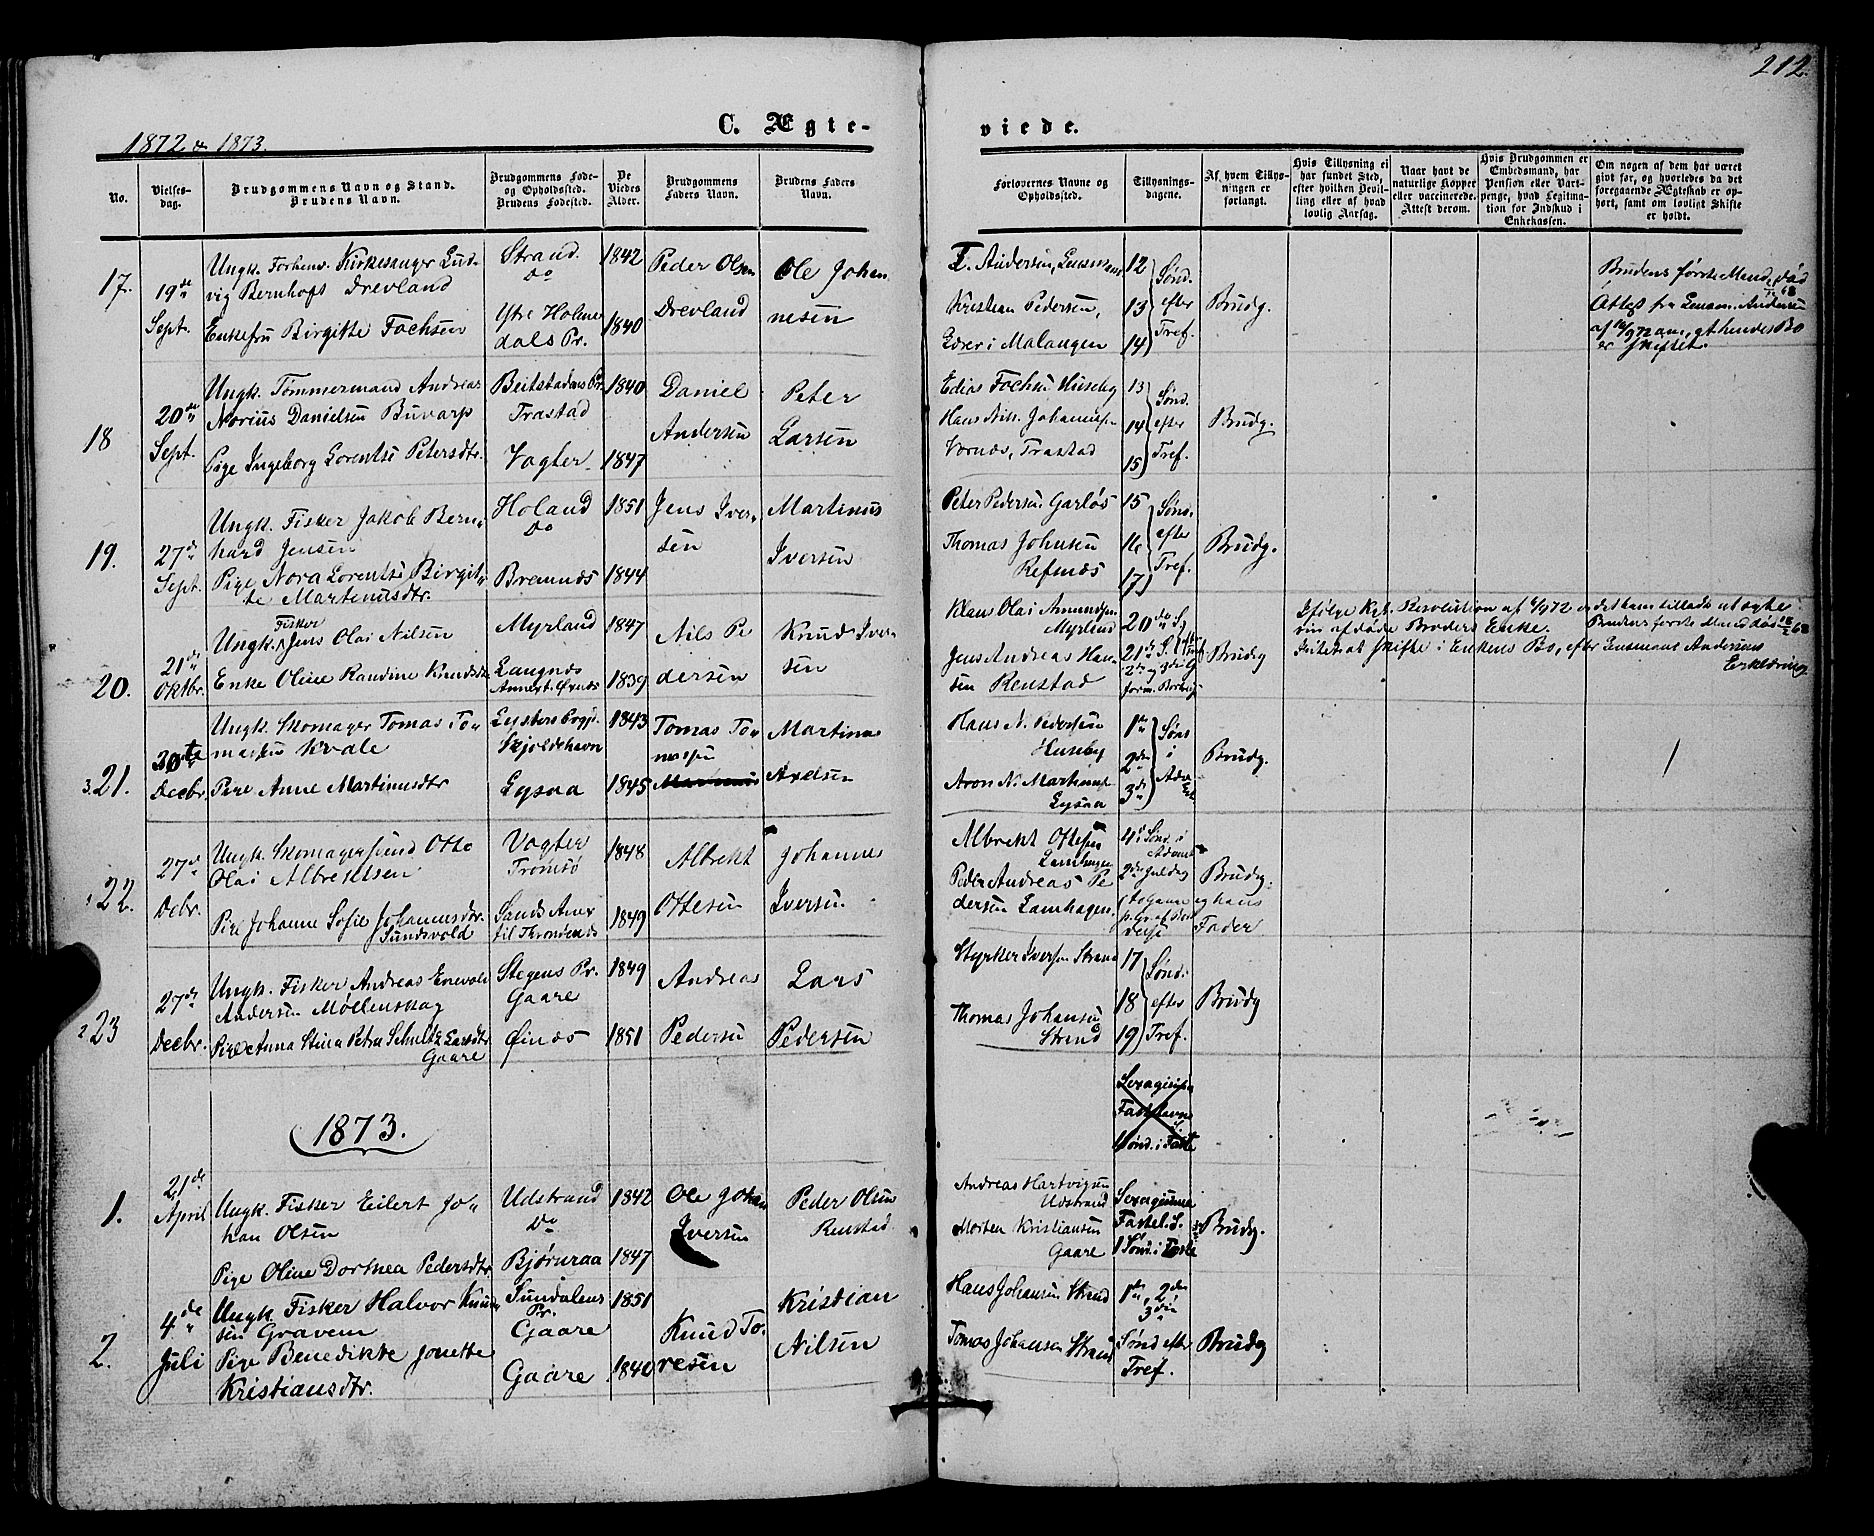 212.
1872 & 1873.
C. Ægte-
viede.
No.
Vielses-
dag.
Brudgommens Navn og Stand.
Brudens Navn.
Brudgommens Føde-
og Opholdssted.
Brudens Fødested.
De
Viedes
Alder.
Brudgommens
Faders Navn.
Brudens Faders
Navn.
Forlovernes Navne og
Opholdssted.
Tillysnings-
dagene.
Af hvem Tillys-
ningen er
forlangt.
Hvis Tillysning ei
har fundet Sted,
efter hvilken Bevil-
ling eller af hvad
lovlig Aarsag.
Naar havt de
naturlige Kopper
eller vaccinerede.
Attest derom.
Hvis Brudgommen er
Embedsmand, har
Pension eller Vart-
penge, hvad Legitima-
tion for Indskud i
Enkekassen.
Om nogen af dem har været
givt før, og hvorledes da det
foregaaende Ægteskab er op-
hørt, samt om lovligt Skifte
er holdt.
17.
19de
Sept.
Ungk. Forhenv. Kirkesanger Lud-
vig Bernhoft Drevland
Enkefru Birgitte Fochsen
Strand
Do
Ytre Holme
dals Pr.
1842
1840
Peder Olsen
Drevland
Ole Johan
nesen
I. Andersen,
Kristian Pedersen,
i Malangen
12
13
14
Sønd.
efter
Tref.
Brudg.
Brudens første Mand død
Attest fra Lensm. Andersen
er skiftet.
18
20de
Sept.
Ungk. Tømmermand Andreas
Norius Danielsen Buvarp
Pige Ingeborg Lorentse Petersdtr.
Beitstadens Pr.
Trastad
Vogter
1840
1847
Daniel
Andersen
Peter
Larsen
Edias Fochs. Huseby
Hans Nik. Johannes
Vornes, Trastad
13
14
15
Sønd.
efter
Tref.
Brudg.
19.
27de
Sept.
Ungk. Fisker Jakob Bern-
hard Jensen
Pige Nora Lorentse Birgit-
te Martinusdtr.
Holand
Do
Bremnes
1851
1844
Jens Iver-
sen
Martinus
Iversen
Peter Pedersen Garløs
Thomas Johnsen
Refsnes
15
16
17
Sønd.
efter
Tref.
Brudg.
20.
21de
Oktbr.
Fisker
Ungk. Jens Olai Nilsen
Enke Oline Randine Knudsdtr
Myrland
Langnes
1847
1839
Nils Pe
dersen
Knud Iver-
sen
Klaus Olai Amundsen
Myrlnd
Jens Andreas Han-
sen Renstad
20de S.
21de S.
Brudg
Ifølge Kgl. Resolution af 6/9 72 er det ham tilladt at ægte
sin afdøde Broders Enke. Brudens første Mand død
skifte i Enkens Bo, efter Lensmand Andersens
Erklæring
21.
30te
Decbr.
Ungk. Skomager Tomas To-
massen Kvale
Pige Anne Martinusdtr
Lysters Prgj.
Skjoldehavn
Lysaa
1843
1845
Tomas To-
massen
Martinus
Axelsen
Hans N. Pedersen
Huseby
Aron N. Martinus
Lysaa
1ste
2den
3de
Sønd
i
Advent
Brudg.
22.
27de
Decbr.
Ungk. Skomagersvend Otto
Olai Albrektsen
Pige Johanne Sofie Johannesdtr.
Sundsvold
Vogter
Tromsø
Sands Anex
til Throndenes
1848
1849
Albrekt
Ottesen
Johannes
Iversen
Albrekt Ottesen
Lamhagen
Peder Andreas Pe
dersen Lamhagen.
4de Sønd. i
Advent
2den Juledag
Brudg.
og hans
Fader
23
27de
Decbr.
Ungk. Fisker Andreas Enevold
Andersen Møllenskog
Pige Anna Stina Petra Schultz Larsdtr
Gaare
Stegens Pr.
Gaare
Øines
1849
1851
Andreas
Pedersen
Lars
Pedersen
Styrker Iversen Strand
Thomas Johansen
Strand
17
18
19
Sønd.
efter
Tref.
Brudg
Sexagesima
Fastelavns
1 Sønd. i Faste
1873.
1.
21de
April
Ungk. Fisker Eilert Jo-
han Olsen
Pige Oline Dorthea Pedersdtr
Udstrand
Do
Bjørnraa
1842
1847
Ole Johan
Iversen
Peder Olsen
Renstad
Andreas Hartvigsen
Udstrand
Morten Kristiansen
Gaare
Sexagesima
Fastel. S.
1 Sønd. i Faste
Brudg.
2.
4de
Juli
Ungk. Fisker Halvor Knud-
sen Gravem
Pige Benedikte Jonette
Kristiansdtr.
Sundalens
Pr.
Gaare
Gaare
1851
1840
Knud To-
resen
Kristian
Nilsen
Hans Johansen Strand
Tomas Johansen Strand
1ste, 2den
3die
Sønd efter
Tref.
Brudg